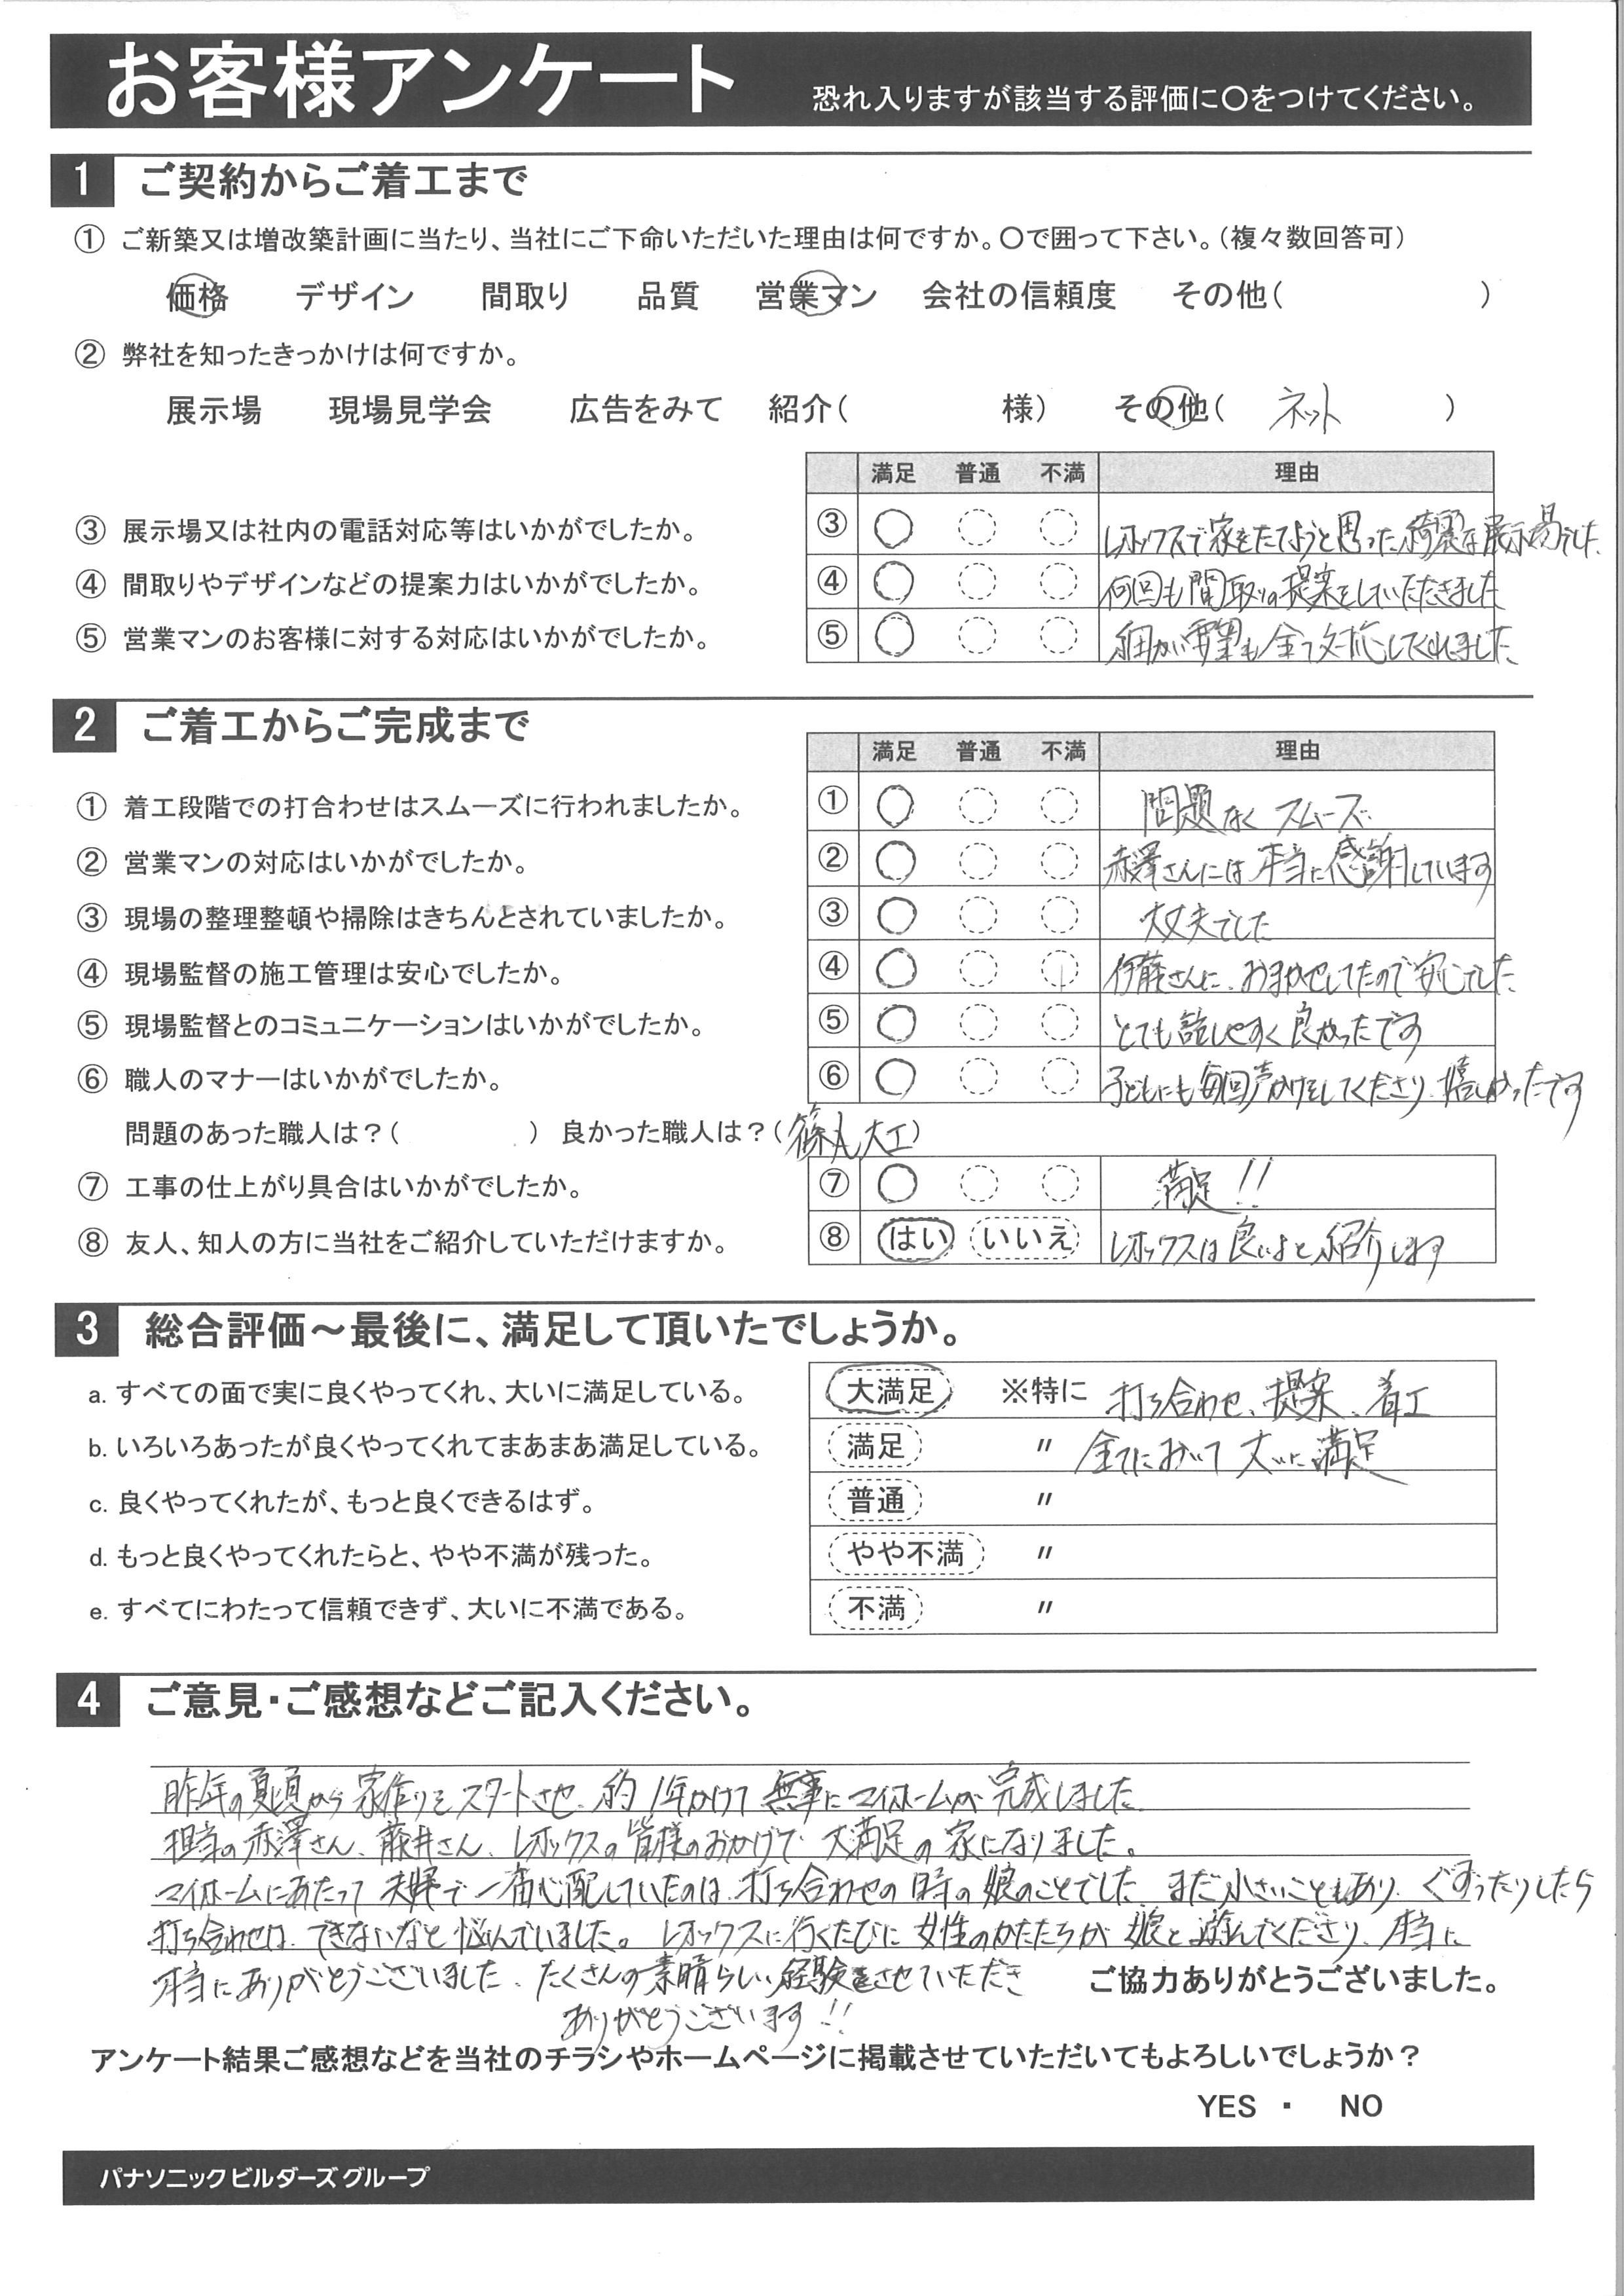 お客様アンケート 恐れ入りますが該当する評価に〇をつけてください。
1 ご契約からご着工まで
① ご新築又は増改築計画に当たり、当社にご下命いただいた理由は何ですか。〇で囲って下さい。（複々数回答可）
価格 デザイン 間取り 品質 営業マン 会社の信頼度 その他（ ）
② 弊社を知ったきっかけは何ですか。
展示場 現場見学会 広告をみて 紹介（ 様） その他（ ネット ）
満足 普通 不満 理由
③ 展示場又は社内の電話対応等はいかがでしたか。 ③ レオックスで家をたてようと思った綺麗な展示場でした
④ 間取りやデザインなどの提案力はいかがでしたか。 ④ 何回も間取りの提案をしていただきました
⑤ 営業マンのお客様に対する対応はいかがでしたか。 ⑤ 細かい要望も全て対応してくれました
2 ご着工からご完成まで
満足 普通 不満 理由
① 着工段階での打合わせはスムーズに行われましたか。 ① 問題なくスムーズ
② 営業マンの対応はいかがでしたか。 ② 赤澤さんには本当に感謝しています
③ 現場の整理整頓や掃除はきちんとされていましたか。 ③ 大丈夫でした
④ 現場監督の施工管理は安心でしたか。 ④ 伊藤さんに、おまかせしてたので安心でした
⑤ 現場監督とのコミュニケーションはいかがでしたか。 ⑤ とても話しやすく良かったです
⑥ 職人のマナーはいかがでしたか。 ⑥ 子どもにも毎回声かけをしてくださり、嬉しかったです
問題のあった職人は？（ ） 良かった職人は？（ 大工）
⑦ 工事の仕上がり具合はいかがでしたか。 ⑦ 満足！！
⑧ 友人、知人の方に当社をご紹介していただけますか。 ⑧ はい いいえ レオックスは良いよと紹介します
3 総合評価～最後に、満足して頂いたでしょうか。
a. すべての面で実に良くやってくれ、大いに満足している。 大満足 ※特に 打ち合わせ、提案、着工
b. いろいろあったが良くやってくれてまあまあ満足している。 満足 〃 全てにおいて大いに満足
c. 良くやってくれたが、もっと良くできるはず。 普通 〃
d. もっと良くやってくれたらと、やや不満が残った。 やや不満 〃
e. すべてにわたって信頼できず、大いに不満である。 不満 〃
4 ご意見・ご感想などご記入ください。
昨年の夏頃から家作りをスタートさせ、約1年かけて無事にマイホームが完成しました。
担当の赤澤さん、藤井さん、レオックスの皆様のおかげで大満足の家になりました。
マイホームにあたって夫婦で一番心配していたのは、打ち合わせの時の娘のことでした。まだ小さいこともあり、ぐずったりしたら
打ち合わせは、できないなと悩んでいました。レオックスに行くたびに女性のかたたちが娘と遊んでくださり、本当に
本当にありがとうございました、たくさんの素晴らしい経験をさせていただき ご協力ありがとうございました。
ありがとうございます！！
アンケート結果ご感想などを当社のチラシやホームページに掲載させていただいてもよろしいでしょうか？
YES ・ NO
パナソニック ビルダーズ グループ